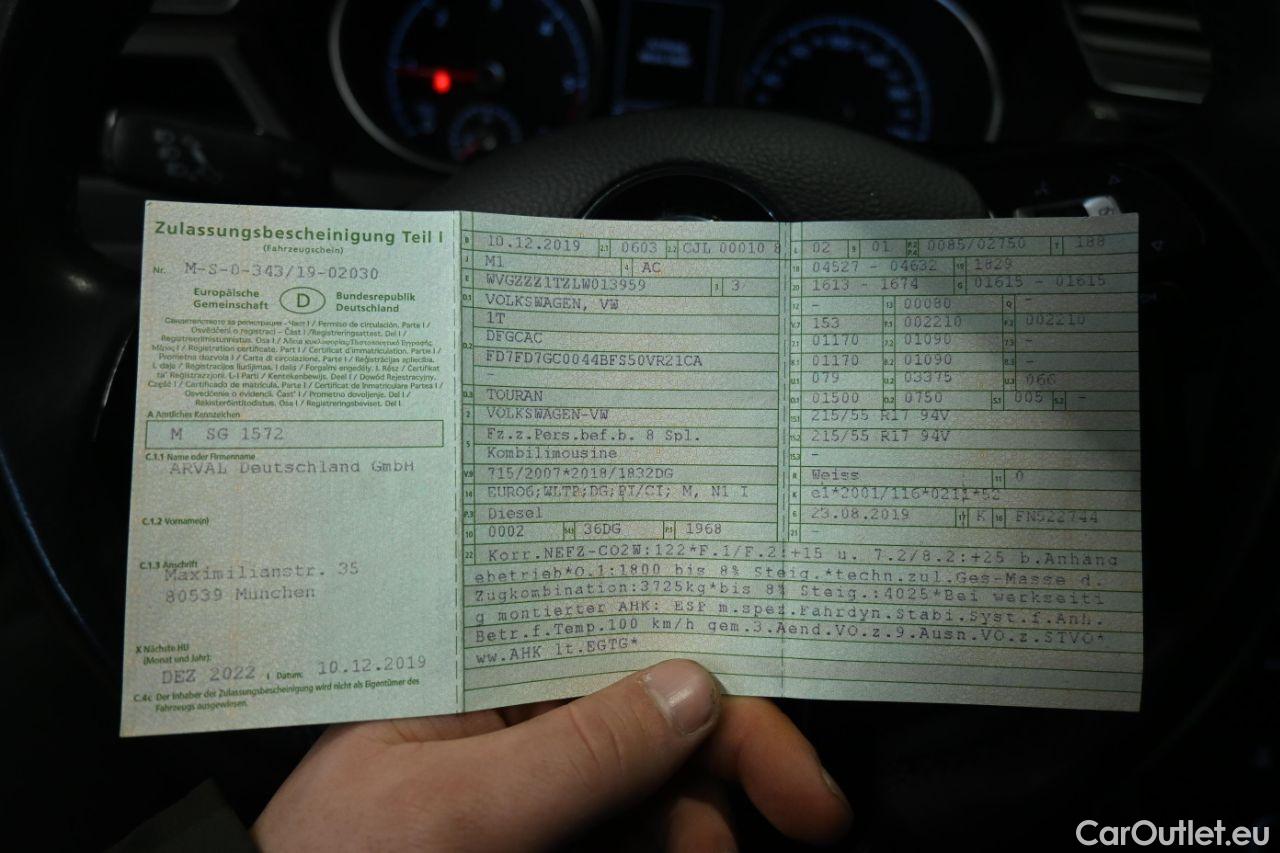 Zulassungsbescheinigung Teil I
(Fahrzeugschein)
Nr. M-S-0-343/19-02030
Europäische Gemeinschaft D Bundesrepublik Deutschland
Свидетелство за регистрация - Част I / Permiso de circulación. Parte I /
Osvědčení o registraci - Část I / Registreringsattest. Del I /
Registreerimistunnistus. Osa I / Άδεια κυκλοφορίας/Πιστοποιητικό Εγγραφής
Μέρος I / Registration certificate. Part I / Certificat d'immatriculation. Partie I /
Prometna dozvola I / Carta di circolazione. Parte I / Reģistrācijas apliecība.
I. daļa / Registracijos liudijimas. I dalis / Forgalmi engedély. I. Rész / Ċertifikat
ta' Reġistrazzjoni. L-I Parti / Kentekenbewijs. Deel I / Dowód Rejestracyjny.
Część I / Certificado de matrícula. Parte I / Certificat de înmatriculare Partea I /
Osvedčenie o evidencii. Časť I / Prometno dovoljenje. Del I /
Rekisteröintitodistus. Osa I / Registreringsbeviset. Del I.
A Amtliches Kennzeichen
M SG 1572
C.1.1 Name oder Firmenname
ARVAL Deutschland GmbH
C.1.2 Vorname(n)
C.1.3 Anschrift
Maximilianstr. 35
80539 München
X Nächste HU
(Monat und Jahr):
DEZ 2022 I Datum: 10.12.2019
C.4c Der Inhaber der Zulassungsbescheinigung wird nicht als Eigentümer des
Fahrzeugs ausgewiesen.
B 10.12.2019 2.1 0603 2.2 CJL 00010 8
J M1 4 AC
E WVGZZZ1TZLW013959 3 3
D.1 VOLKSWAGEN, VW
1T
D.2 DFGCAC
FD7FD7GC0044BFS50VR21CA
-
D.3 TOURAN
2 VOLKSWAGEN-VW
5 Fz.z.Pers.bef.b. 8 Spl.
Kombilimousine
V.9 715/2007*2018/1832DG
14 EURO6;WLTP;DG;PI/CI; M, N1 I
P.3 Diesel
10 0002 14.1 36DG P.1 1968
L 02 9 01 P.2 P.4 0085/02750 T 188
18 04527 - 04632 19 1829
20 1613 - 1674 G 01615 - 01615
12 - 13 00080 Q -
V.7 153 F.1 002210 F.2 002210
7.1 01170 7.2 01090 7.3 -
8.1 01170 8.2 01090 8.3 -
U.1 079 U.2 03375 U.3 066
O.1 01500 O.2 0750 S.1 005 S.2 -
15.1 215/55 R17 94V
15.2 215/55 R17 94V
15.3 -
R Weiss 11 0
K e1*2001/116*0211*52
6 23.08.2019 17 K 16 FN522744
21 -
22 Korr.NEFZ-CO2W:122*F.1/F.2:+15 u. 7.2/8.2:+25 b.Anhäng
ebetrieb*O.1:1800 bis 8% Steig.*techn.zul.Ges-Masse d.
Zugkombination:3725kg*bis 8% Steig.:4025*Bei werkseiti
g montierter AHK: ESP m.spez.Fahrdyn.Stabi.Syst.f.Anh.
Betr.f.Temp.100 km/h gem.3.Aend.VO.z.9.Ausn.VO.z.STVO*
ww.AHK lt.EGTG*
CarOutlet.eu